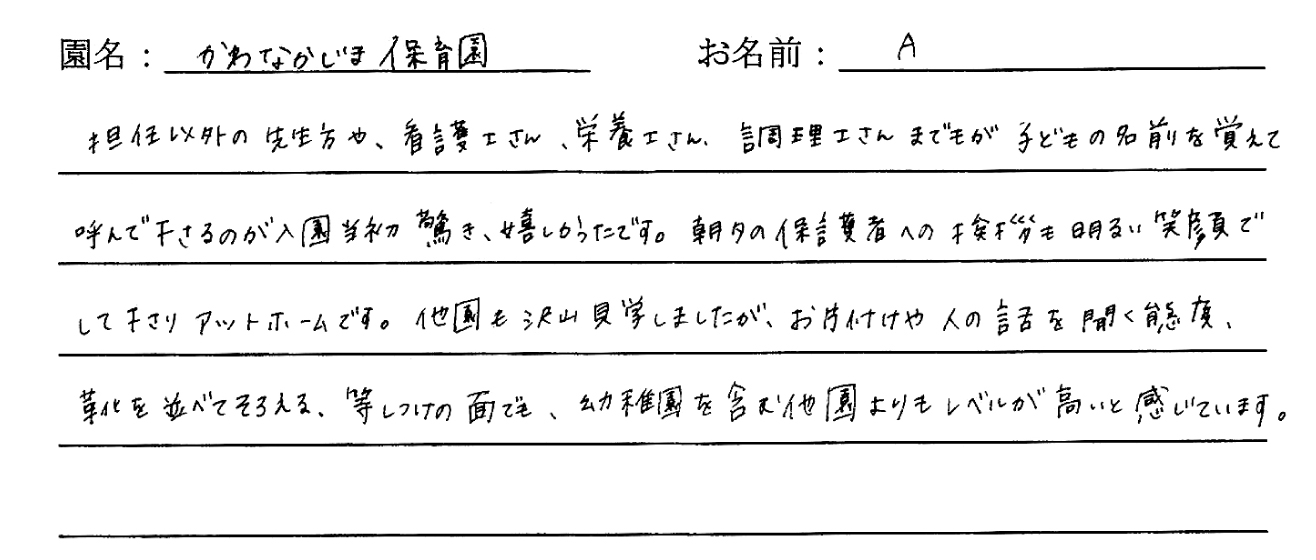 園名：かわなかじま保育園 お名前：A
担任以外の先生方や、看護士さん、栄養士さん、調理士さんまでもが子どもの名前を覚えて
呼んで下さるのが入園当初驚き、嬉しかったです。朝夕の保護者への挨拶も明るい笑顔で
して下さりアットホームです。他園も沢山見学しましたが、お片付けや人の話を聞く態度、
靴を並べてそろえる、等しつけの面でも、幼稚園を含む他園よりもレベルが高いと感じています。